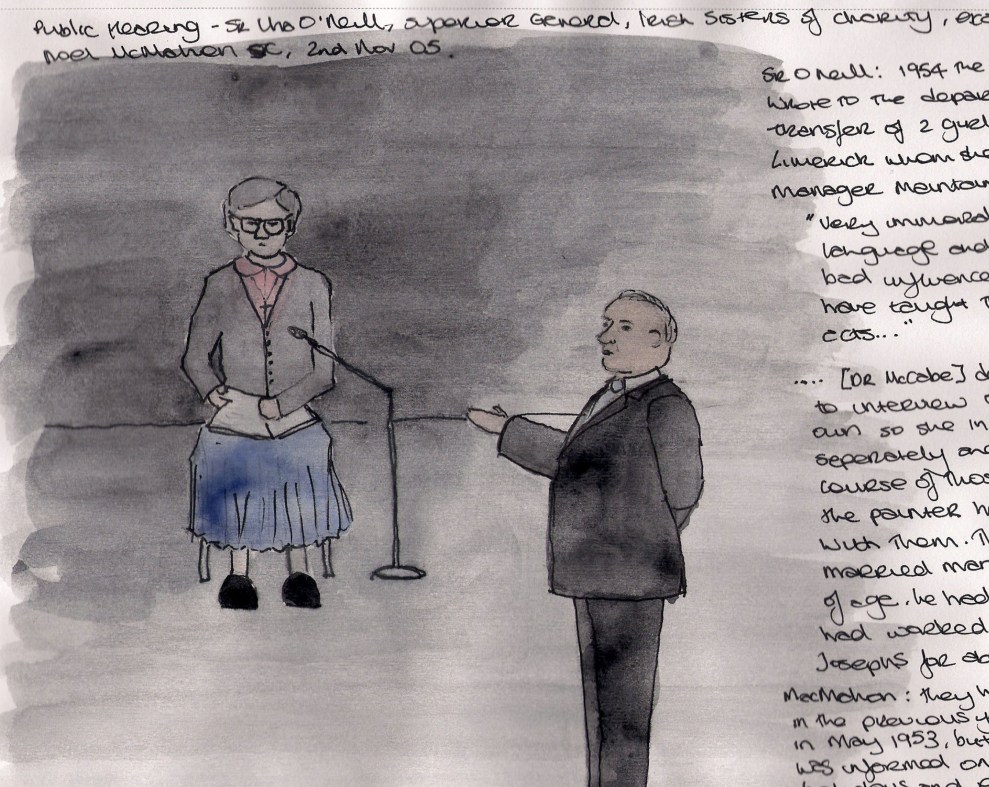 Public Hearing - Sr Una O'Neill, Superior General, Irish Sisters of Charity, exa
Noel McMahon SC, 2nd Nov 05.
Sr O Neill: 1954 the
wrote to the depar
transfer of 2 girl
Limerick whom she
manager maintain
"very immoral
language and
bad influence
have taught t
acts..."
.... [Dr McCabe] d
to interview
own so she in
seperately and
course of thos
the painter h
with them. Th
married man
of age. he had
had worked
Josephs for
MacMahon: they h
in the previous y
in May 1953, but
was informed on